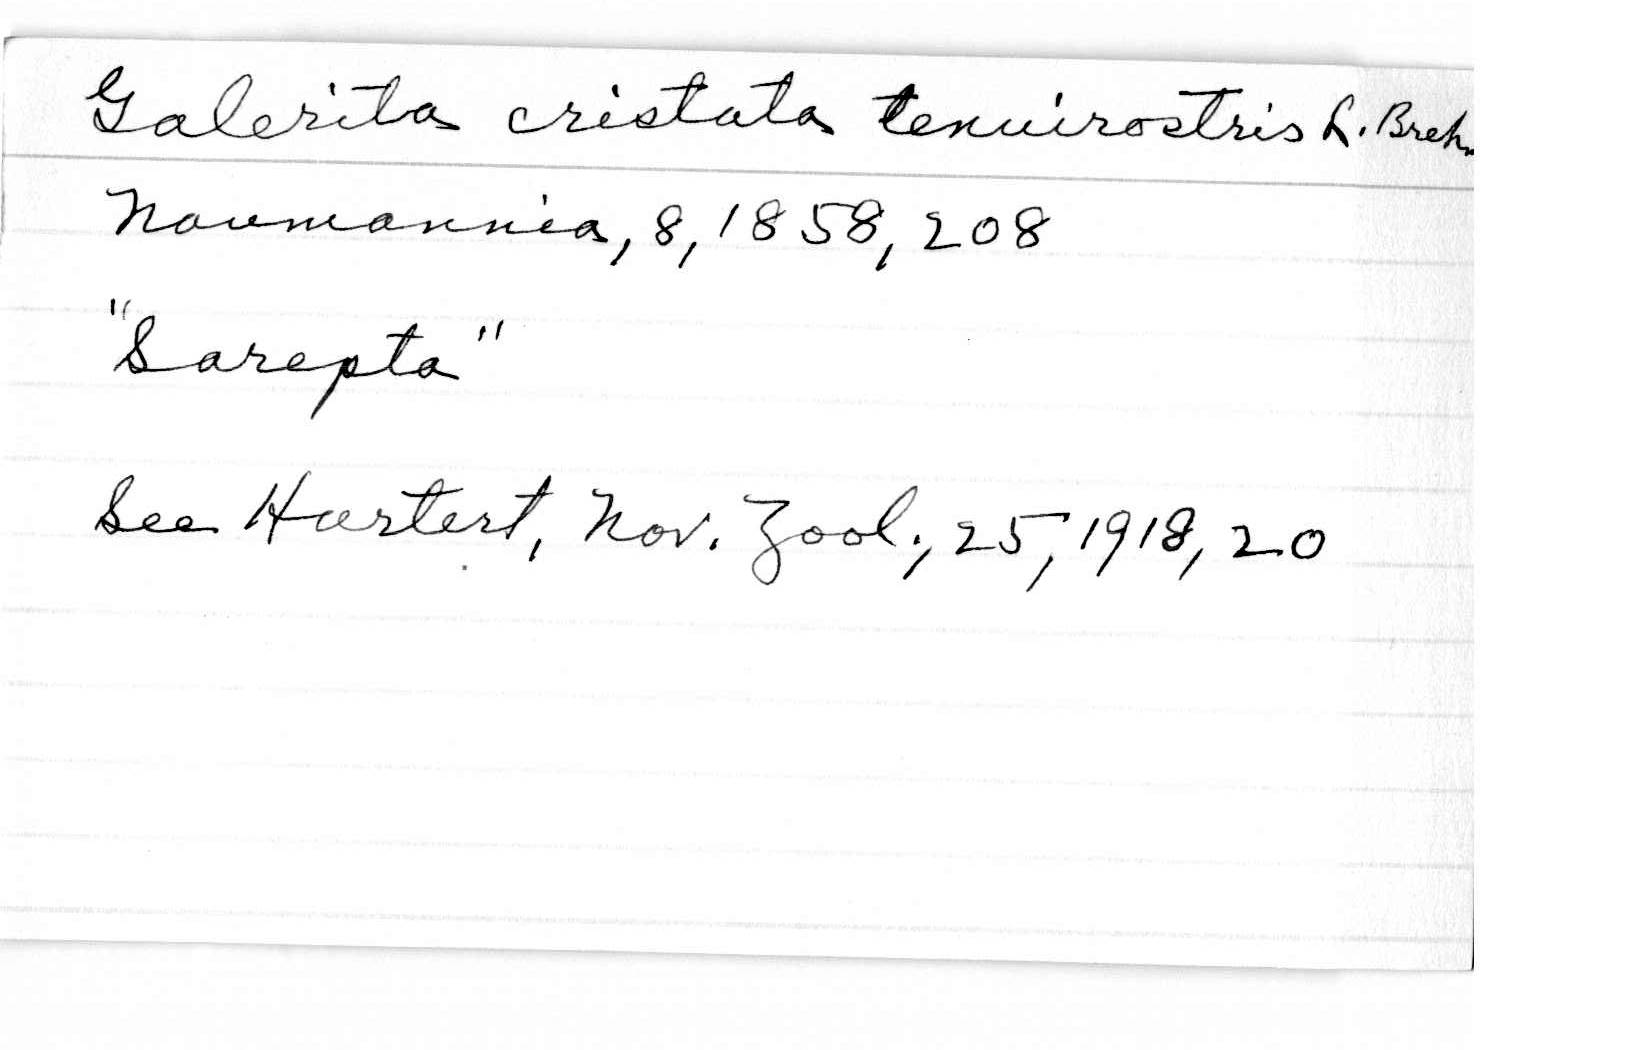 Galerita cristata tenuirostris L. Breh.
Naumannia, 8, 1858, 208
"Sarepta"
See Hartert, Nov. Zool., 25, 1918, 20